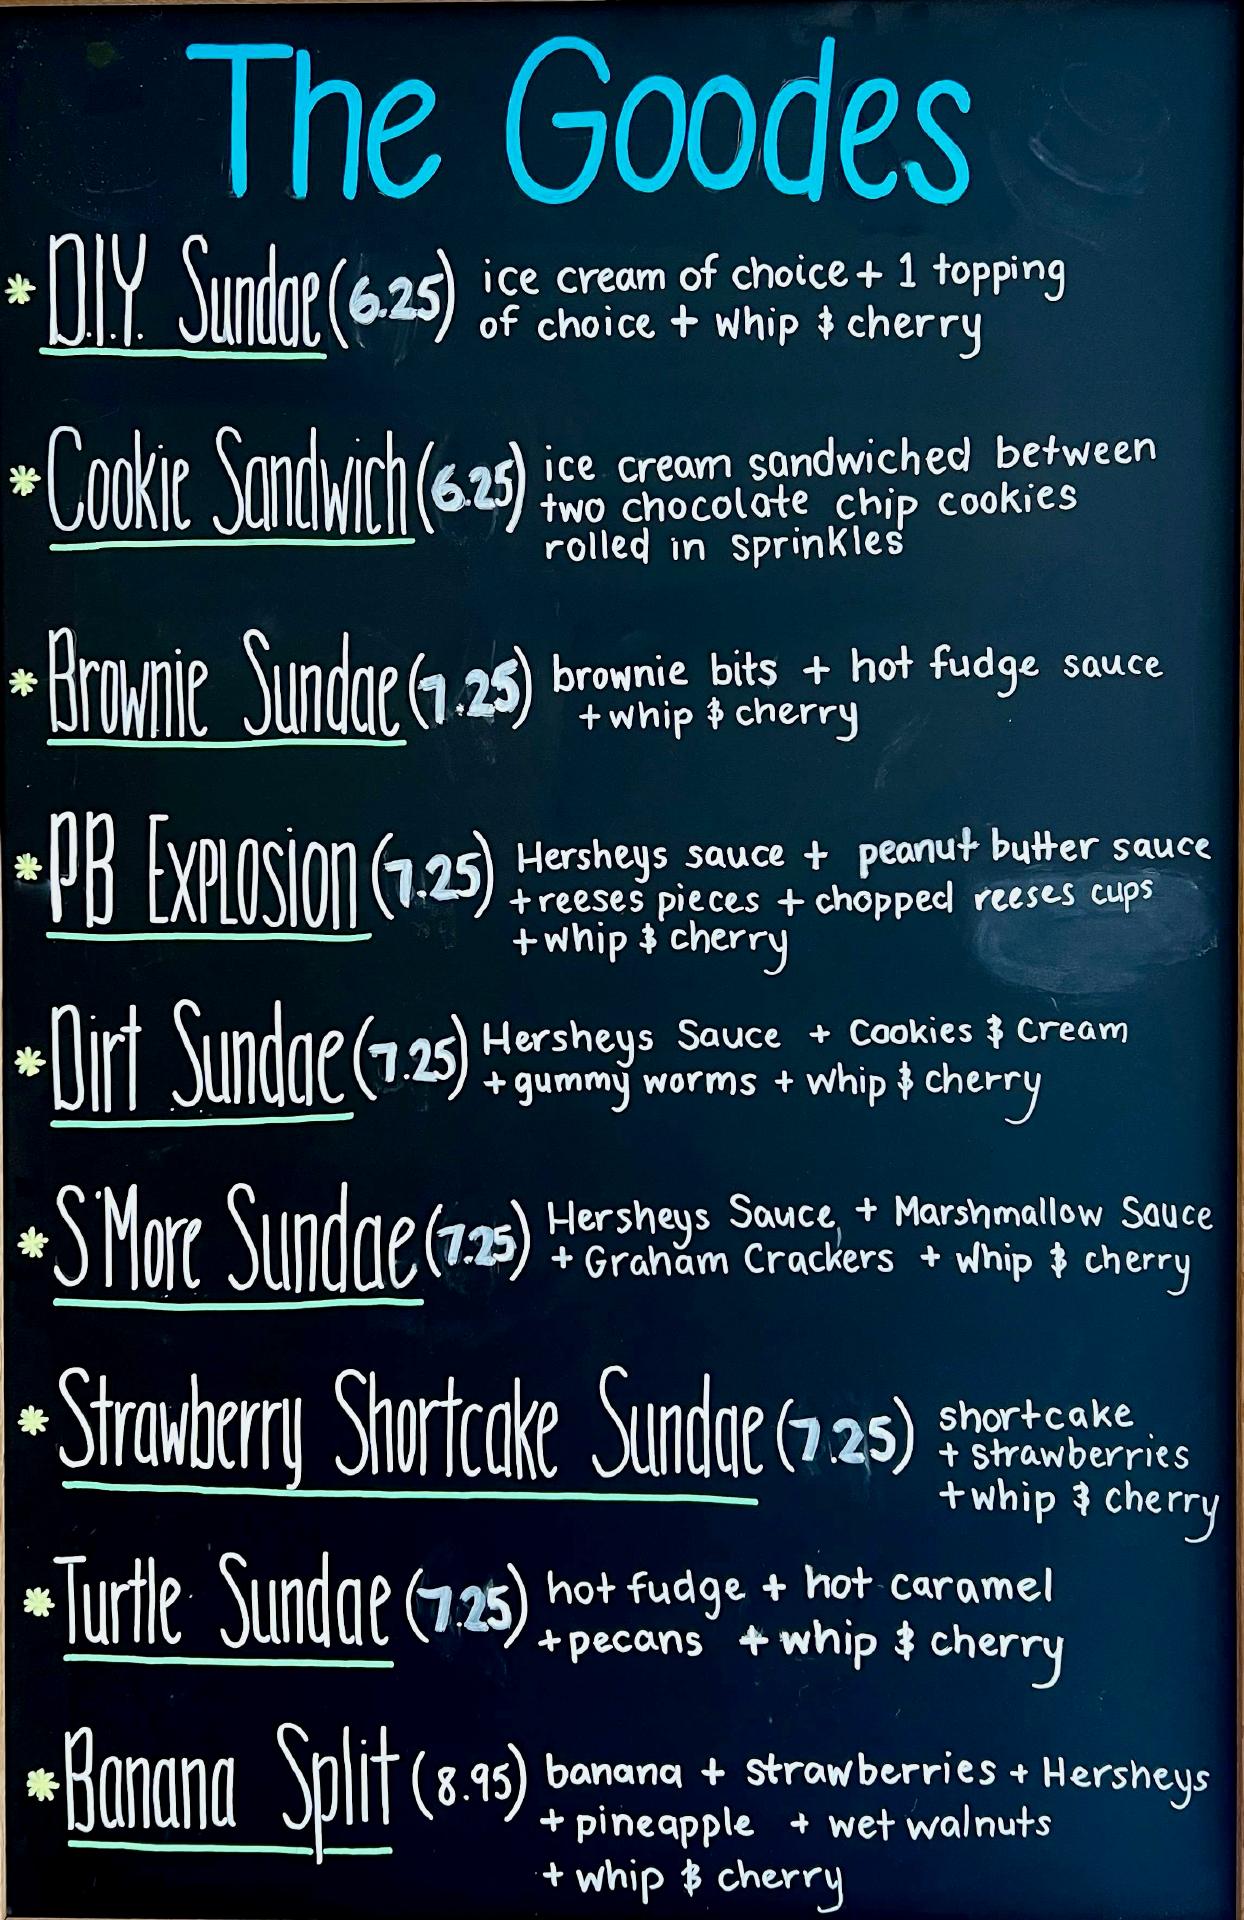 The Goodes
D.I.Y. Sundae (6.25) ice cream of choice + 1 topping
of choice + whip & cherry
Cookie Sandwich (6.25) ice cream sandwiched between
two chocolate chip cookies
rolled in sprinkles
Brownie Sundae (7.25) brownie bits + hot fudge sauce
+ whip & cherry
PB Explosion (7.25) Hersheys sauce + peanut butter sauce
+ reeses pieces + chopped reeses cups
+ whip & cherry
Dirt Sundae (7.25) Hersheys Sauce + Cookies & Cream
+ gummy worms + whip & cherry
S'More Sundae (7.25) Hersheys Sauce, + Marshmallow Sauce
+ Graham Crackers + whip & cherry
Strawberry Shortcake Sundae (7.25) shortcake
+ strawberries
+ whip & cherry
Turtle Sundae (7.25) hot fudge + hot caramel
+ pecans + whip & cherry
Banana Split (8.95) banana + strawberries + Hersheys
+ pineapple + wet walnuts
+ whip & cherry